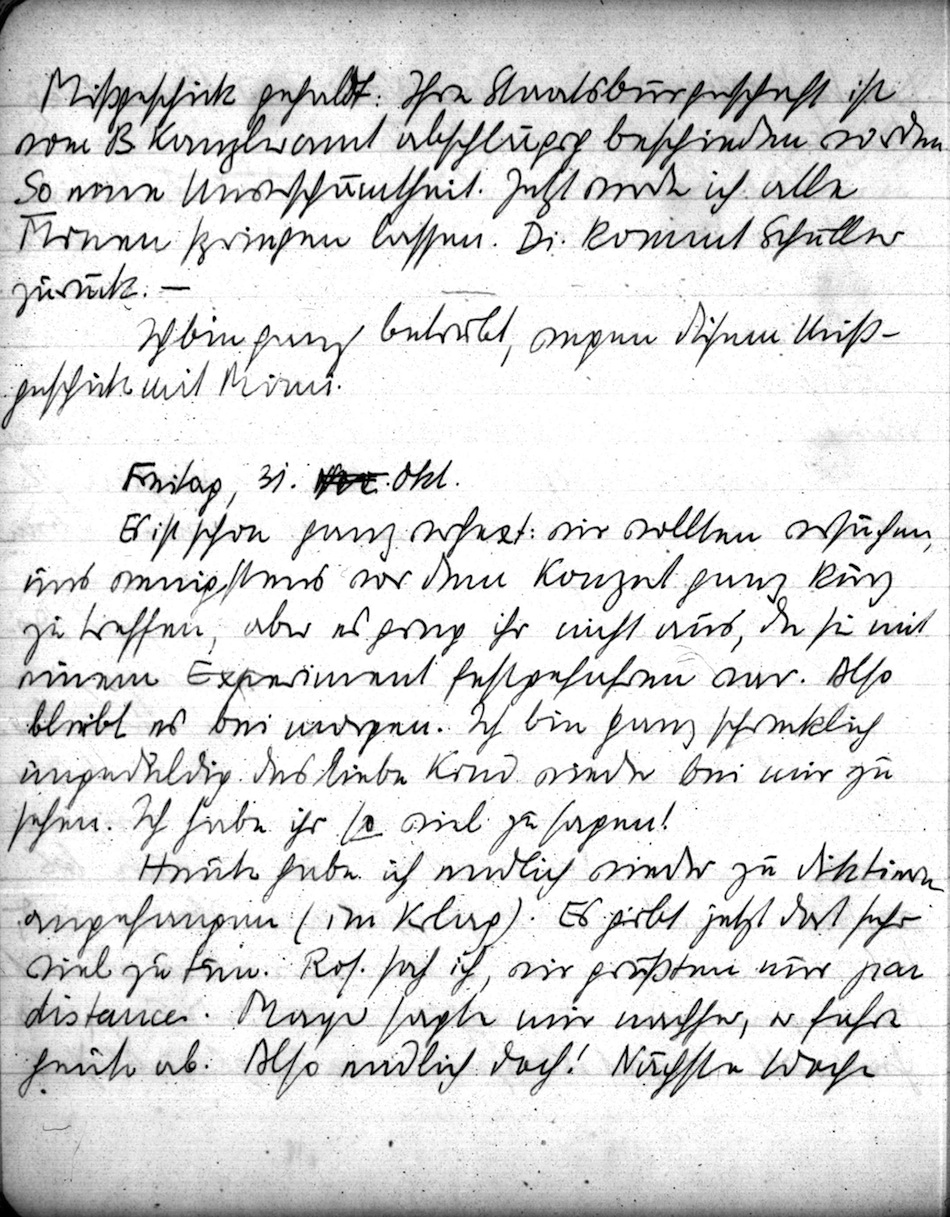 Mißgeschick gehabt: Ihre Staatsbürgerschaft ist
vom B Kanzleramt abschlägig beschieden worden
So eine Unverschämtheit. Jetzt werde ich alle
Minen springen lassen. Di. kommt Schüller
zurück. —
Ich bin ganz betrübt, wegen diesem Miß-
geschick mit Mimi.
Freitag, 31. Okt.
Es ist schon ganz verhext: wir wollten versuchen,
uns wenigstens vor dem Konzert ganz kurz
zu treffen, aber es ging ihr nicht aus, da sie mit
einem Experiment festgefahren war. Also
bleibt es bei morgen. Ich bin ganz schrecklich
ungeduldig das liebe Kind wieder bei mir zu
sehen. Ich habe ihr so viel zu sagen!
Heute habe ich endlich wieder zu diktieren
angefangen (im Verlag). Es gibt jetzt dort sehr
viel zu tun. Ros. sah ich, wir grüßten nur par
distance. Maye sagte mir nachher, er fahre
heute ab. Also endlich doch! Nächste Woche